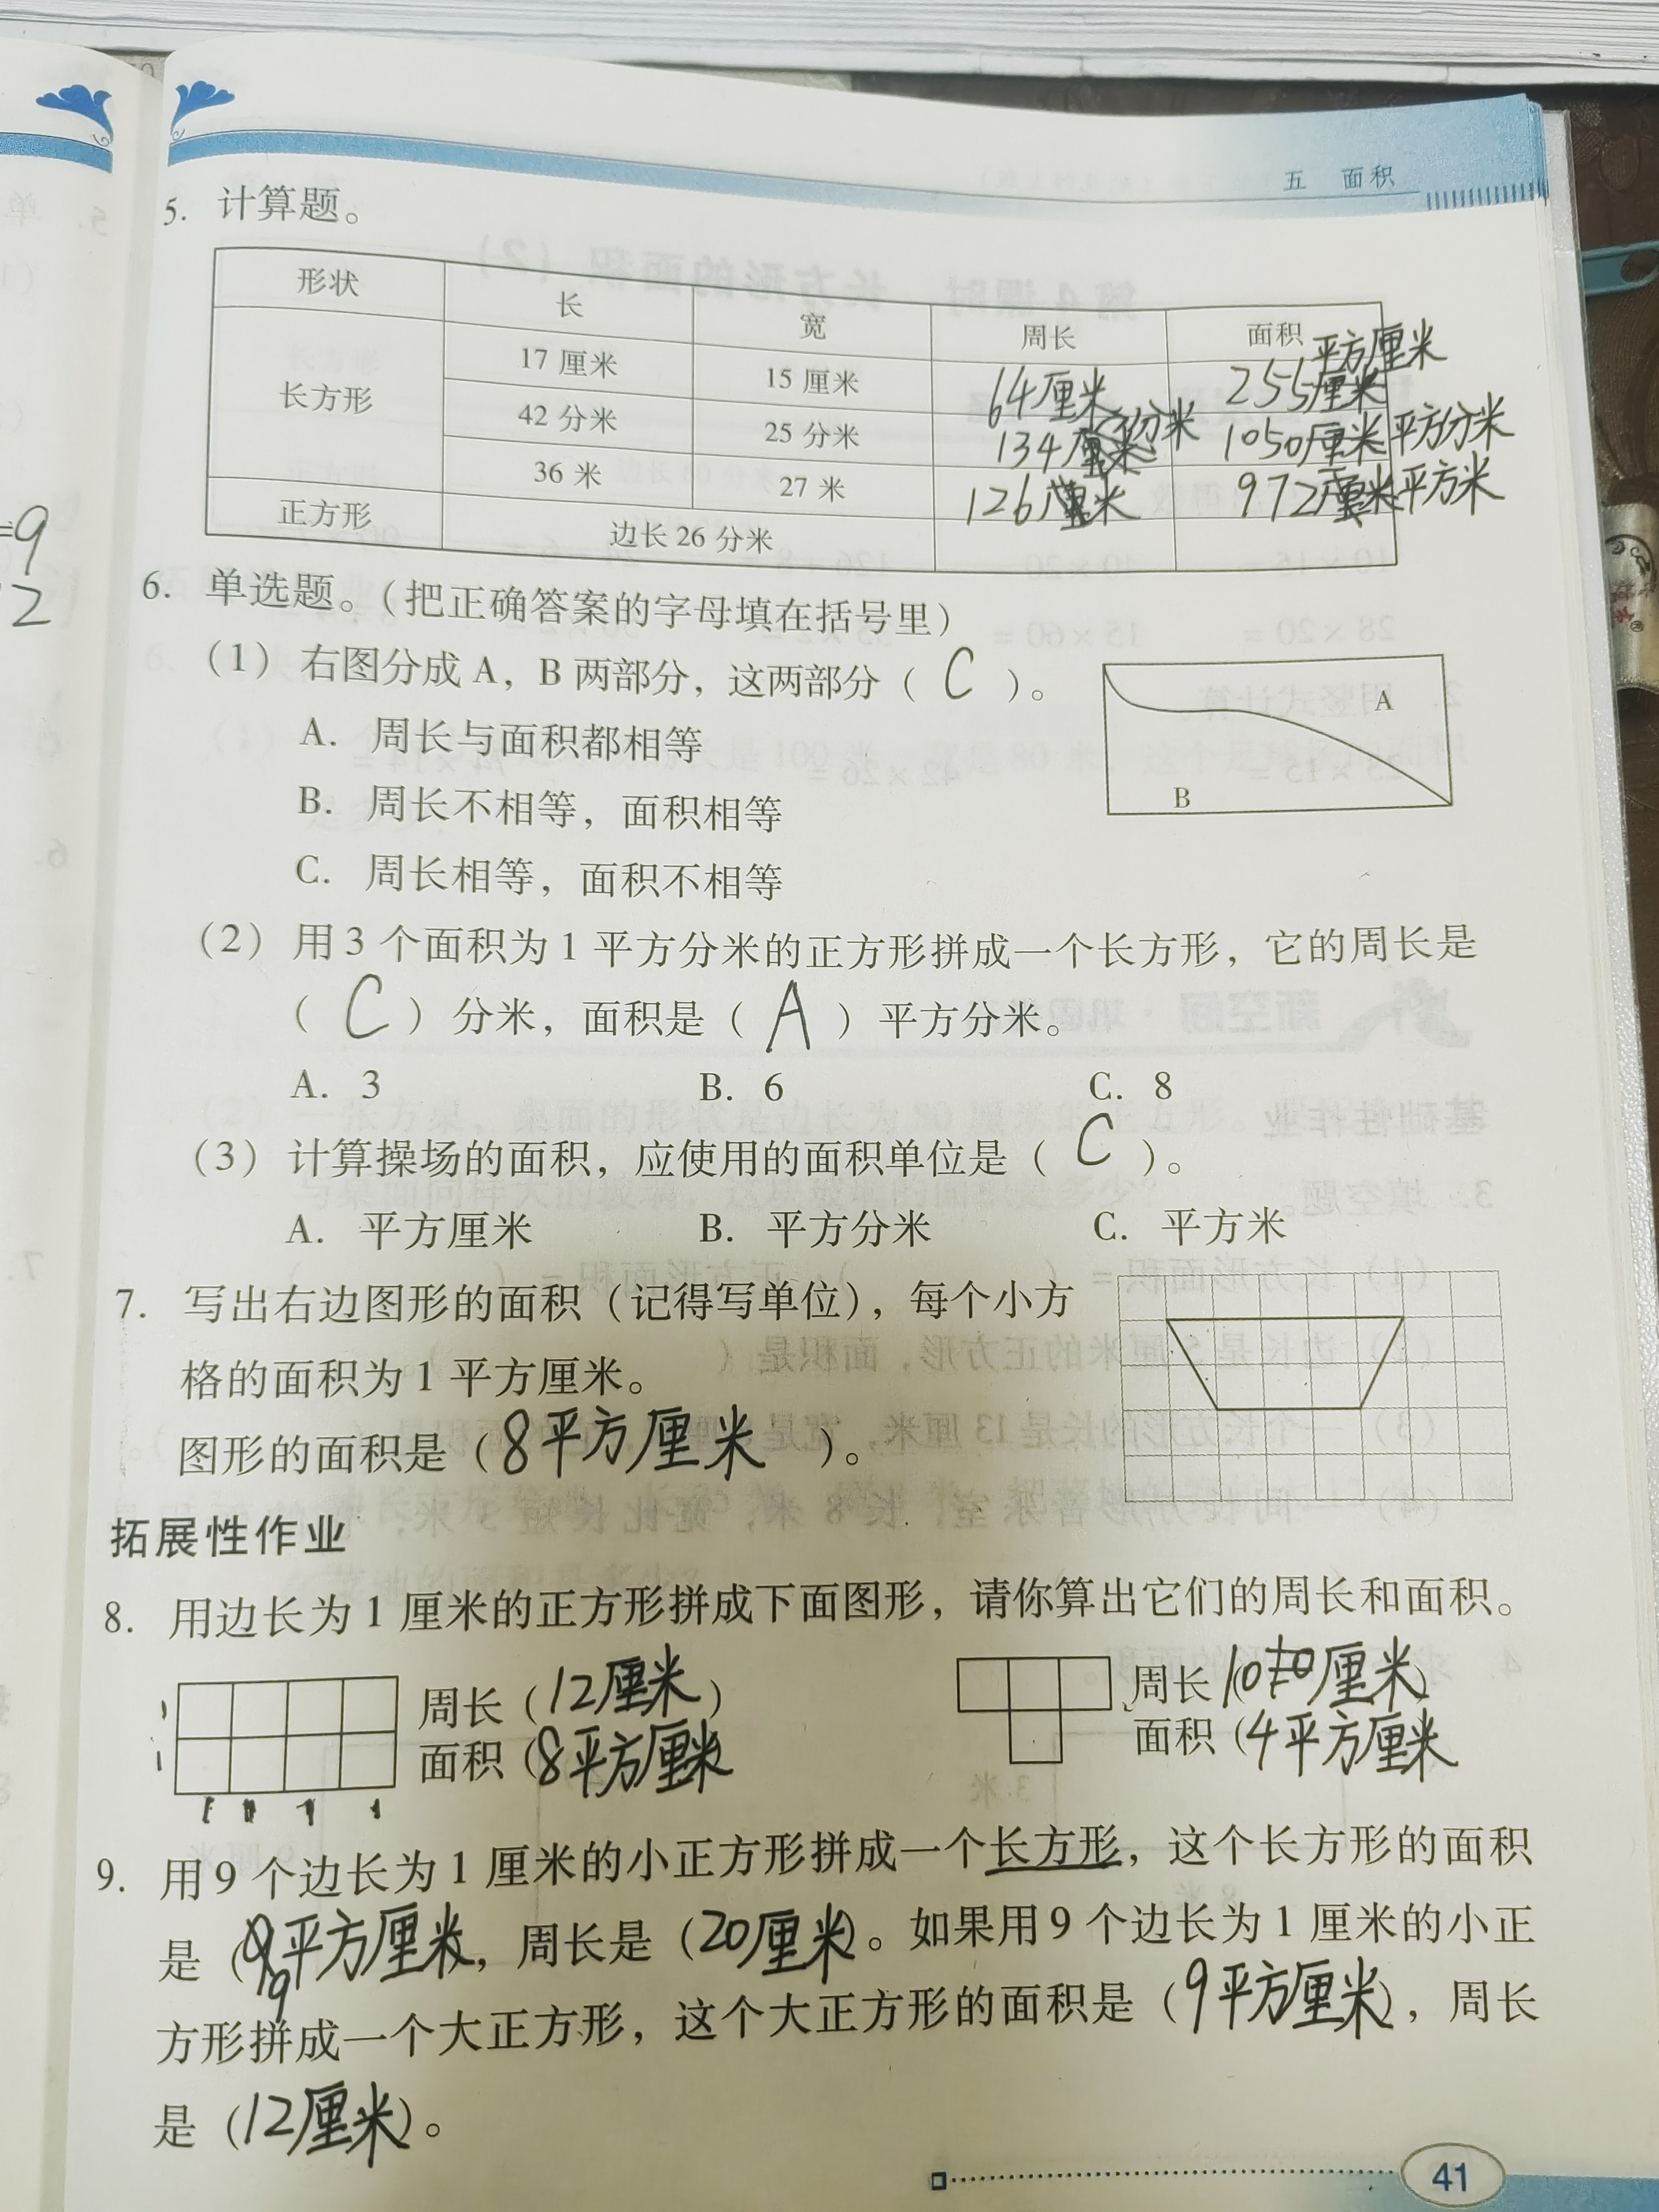 五 面积
5. 计算题。
形状 长 宽 周长 面积
长方形 17 厘米 15 厘米 64厘米 255平方厘米
42 分米 25 分米 134分米 1050平方分米
36 米 27 米 126米 972平方米
正方形 边长 26 分米
6. 单选题。（把正确答案的字母填在括号里）
（1）右图分成 A，B 两部分，这两部分（ C ）。
A. 周长与面积都相等
B. 周长不相等，面积相等
C. 周长相等，面积不相等
A
B
（2）用 3 个面积为 1 平方分米的正方形拼成一个长方形，它的周长是
（ C ）分米，面积是（ A ）平方分米。
A. 3 B. 6 C. 8
（3）计算操场的面积，应使用的面积单位是（ C ）。
A. 平方厘米 B. 平方分米 C. 平方米
7. 写出右边图形的面积（记得写单位），每个小方
格的面积为 1 平方厘米。
图形的面积是（8平方厘米）。
拓展性作业
8. 用边长为 1 厘米的正方形拼成下面图形，请你算出它们的周长和面积。
周长（12厘米） 周长（10厘米）
面积（8平方厘米 面积（4平方厘米
9. 用 9 个边长为 1 厘米的小正方形拼成一个长方形，这个长方形的面积
是（9平方厘米，周长是（20厘米）。如果用 9 个边长为 1 厘米的小正
方形拼成一个大正方形，这个大正方形的面积是（9平方厘米），周长
是（12厘米）。
41
=9
2